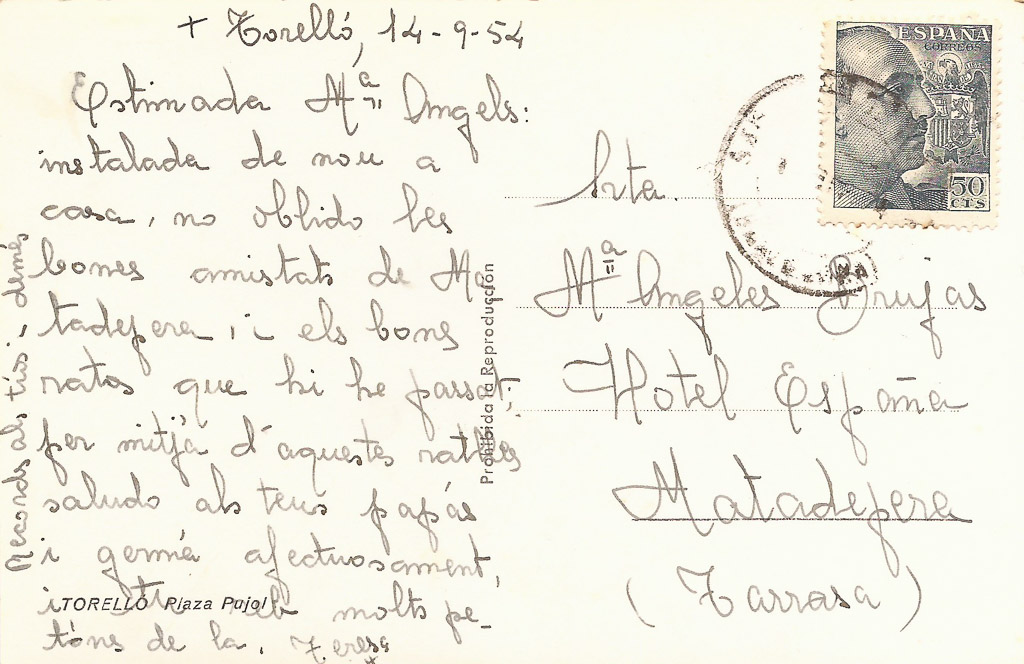 + Torelló, 14-9-54
Estimada Mª Angels:
instalada de nou a
casa, no oblido les
bones amistats de Ma
tadepera, i els bons
ratos que hi he passat;
per mitjà d'aquestes ratlles
saludo als teus papás
i germà afectuosament,
i tu reb molts pe-
tóns de la. Teresa
Records als tíos i demés
TORELLÓ Plaza Pujol
Prohibida la Reproducción
ESPAÑA
CORREOS
50
CTS
Srta.
Mª Angeles Brujas
Hotel España
Matadepera
(Tarrasa)